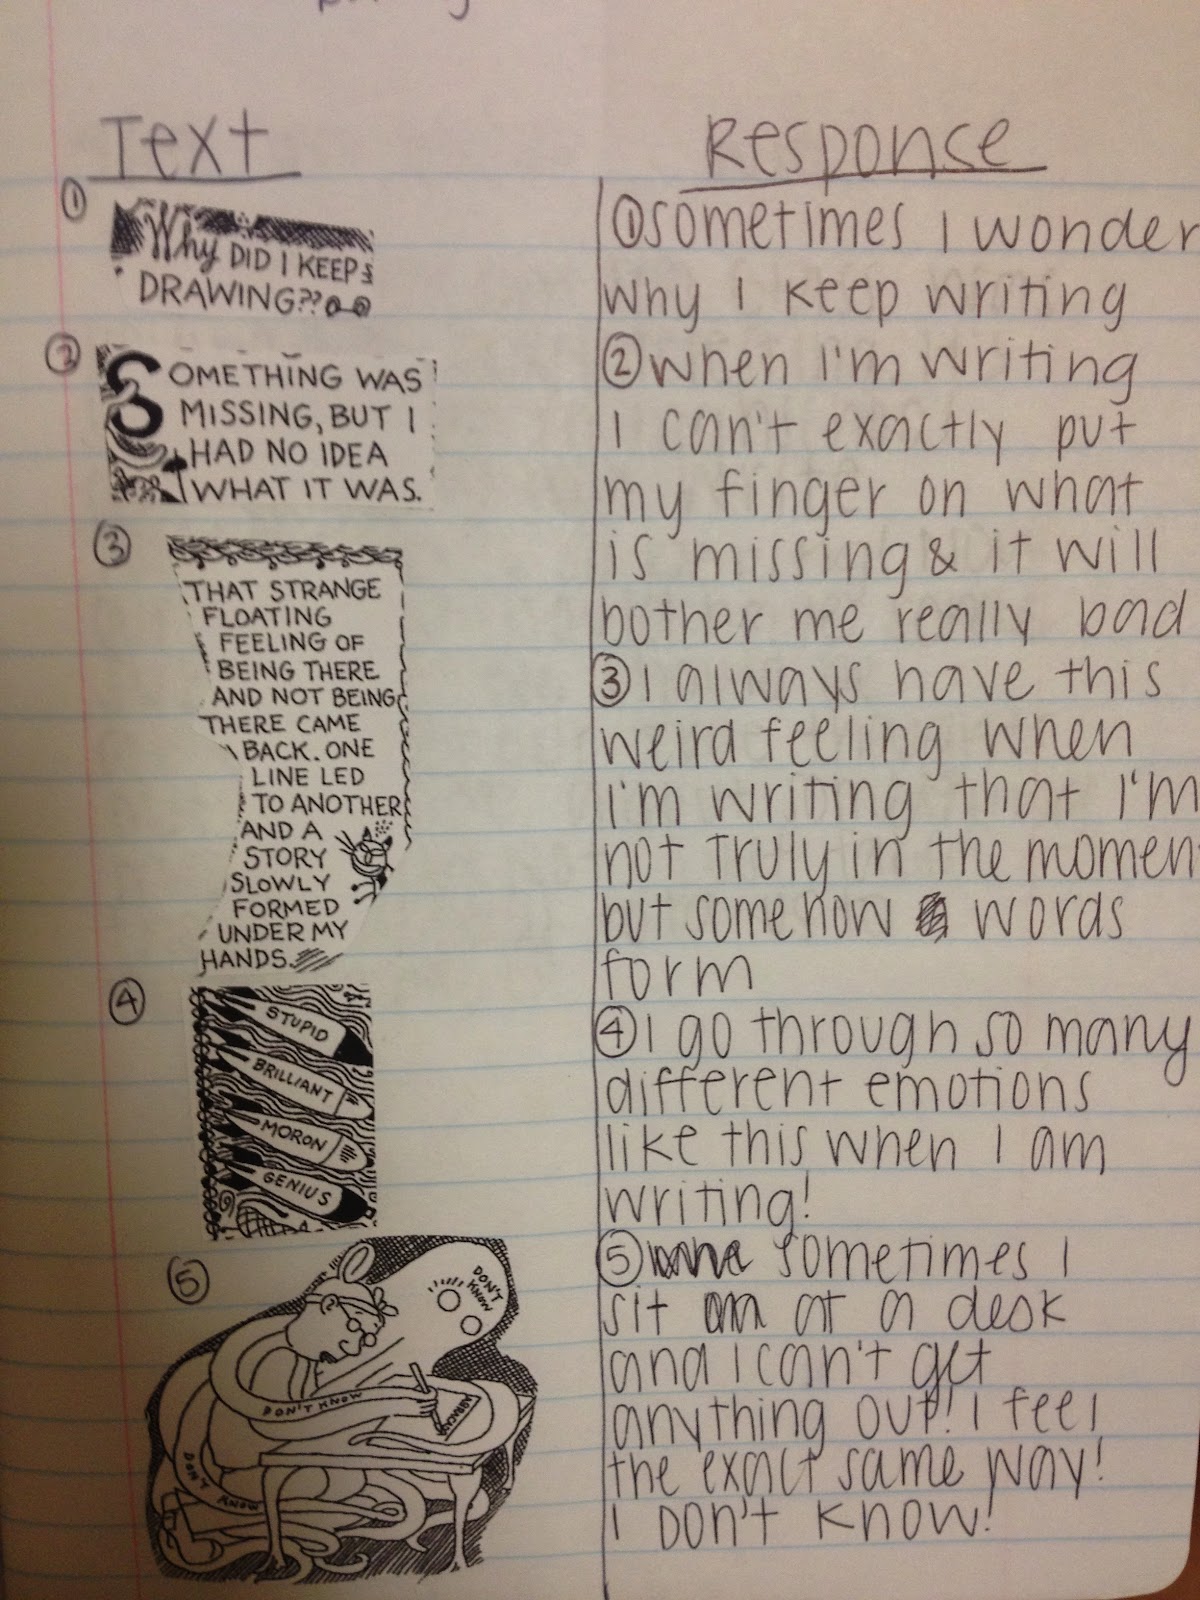 Text
①
Why DID I KEEP
DRAWING??
②
SOMETHING WAS
MISSING, BUT I
HAD NO IDEA
WHAT IT WAS.
③
THAT STRANGE
FLOATING
FEELING OF
BEING THERE
AND NOT BEING
THERE CAME
BACK. ONE
LINE LED
TO ANOTHER
AND A
STORY
SLOWLY
FORMED
UNDER MY
HANDS.
④
STUPID
BRILLIANT
MORON
GENIUS
⑤
DON'T
KNOW
DON'T KNOW
DON'T KNOW
Response
① sometimes I wonder
why I keep writing
② when I'm writing
I can't exactly put
my finger on what
is missing & it will
bother me really bad
③ I always have this
weird feeling when
I'm writing that I'm
not truly in the momen
but somehow words
form
④ I go through so many
different emotions
like this when I am
writing!
⑤ sometimes I
sit at a desk
and I can't get
anything out! I feel
the exact same way!
I DON'T KNOW!